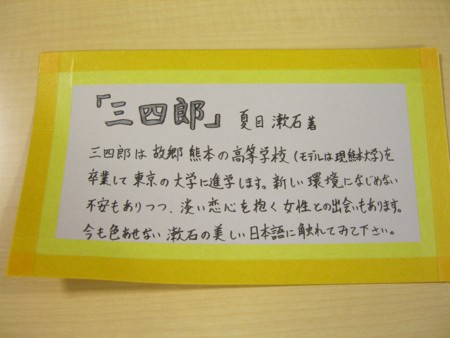 「三四郎」 夏目漱石著
三四郎は故郷熊本の高等学校(モデルは現熊本大学)を
卒業して東京の大学に進学します。新しい環境になじめない
不安もありつつ、淡い恋心を抱く女性との出会いもあります。
今も色あせない漱石の美しい日本語に触れてみて下さい。